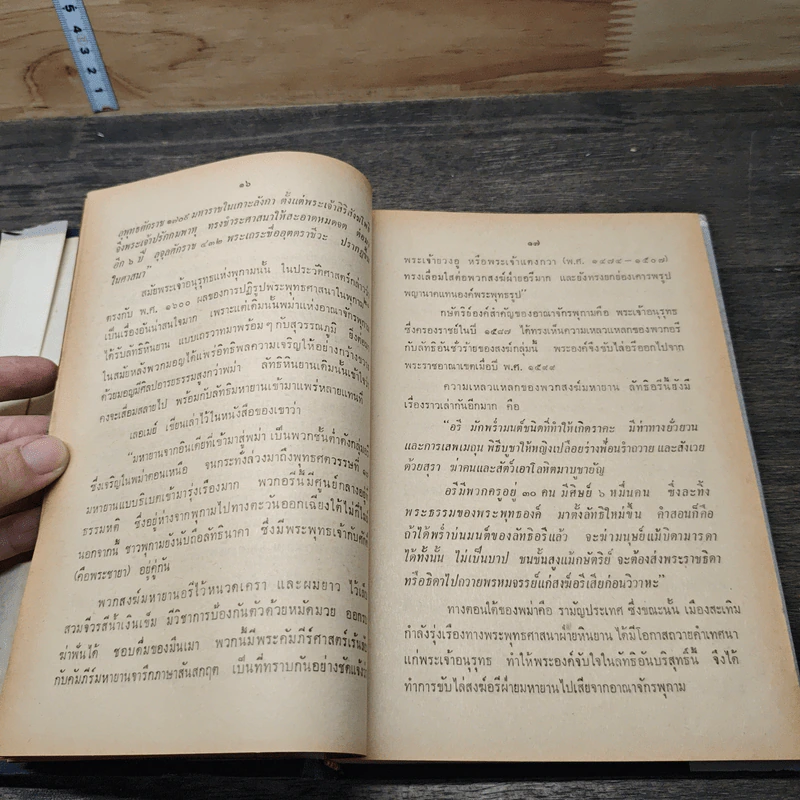 5
4
3
2
1
๑๖
ลุพุทธศักราช ๑๗๐๙ มหาราชในเกาะลังกา ตั้งแต่พระเจ้าสิริสังฆโพธิ
จึงพระเจ้าปรักกมพาหุ ทรงชำระศาสนาให้สะอาดหมดจด
อีก ๖ ปี จุลศักราช ๔๓๒ พระเถระชื่ออุตตราชีวะ
ในศาสนา"
สมัยพระเจ้าอนุรุทธแห่งพุกามนั้น ในประวัติศาสตร์กล่าวว่า
ตรงกับ พ.ศ. ๑๖๐๐ ผลของการปฏิรูปพระพุทธศาสนาในพุกาม
เป็นเรื่องอันน่าสนใจมาก เพราะแต่เดิมนั้นพม่าและอาณาจักรพุกาม
ได้รับลัทธิหินยาน แบบเถรวาทมาพร้อม ๆ กับสุวรรณภูมิ
ในสมัยหลังพวกมอญได้แพร่อิทธิพลความเจริญให้อย่างกว้างขวาง
ด้วยมอญมีศิลปอารยธรรมสูงกว่าพม่า ลัทธิหินยานเดิมนั้นเข้าใจว่า
คงจะเสื่อมสลายไป พร้อมกับลัทธิมหายานเข้ามาแพร่หลายแทนที่
เลอเมย์ เขียนเล่าไว้ในหนังสือของเขาว่า
"มหายานจากอินเดียที่เข้ามาสู่พม่า เป็นพวกชั้นต่ำดังกลุ่มอรี
ซึ่งเจริญในพม่าตอนเหนือ จนกระทั่งล่วงมาถึงพุทธศตวรรษที่
มหายานแบบธิเบตเข้ามารุ่งเรืองมาก พวกอรีนี้มีศูนย์กลางอยู่ที่
ธรรมหติ ซึ่งอยู่ห่างจากพุกามไปทางตะวันออกเฉียงใต้ไม่กี่ไมล์
นอกจากนี้ ชาวพุกามยังนับถือลัทธินาคา ซึ่งมีพระพุทธเจ้ากับศักติ
(คือพระชายา) อยู่คู่กัน
พวกสงฆ์มหายานอรีไว้หนวดเครา และผมยาว ไว้เล็บ
สวมจีวรสีน้ำเงินเข้ม มีวิชาการป้องกันตัวด้วยหมัดมวย ออกรบ
ฆ่าฟันได้ ชอบดื่มของมึนเมา พวกนี้มีพระคัมภีร์ศาสตร์เร้นลับ
กับคัมภีร์มหายานจารึกภาษาสันสกฤต เป็นที่ทราบกันอย่างชัดแจ้งว่า
๑๗
พระเจ้ายวงอู หรือพระเจ้าแตงกวา (พ.ศ. ๑๔๗๔–๑๕๐๗)
ทรงเลื่อมใสต่อพวกสงฆ์ฝ่ายอรีมาก และยังทรงยกย่องเคารพรูป
พญานาคแทนองค์พระพุทธรูป"
กษัตริย์องค์สำคัญของอาณาจักรพุกามคือ พระเจ้าอนุรุทธ
ซึ่งครองราชย์ในปี ๑๕๘๗ ได้ทรงเห็นความเหลวแหลกของพวกอรี
กับลัทธิอันชั่วร้ายของสงฆ์กลุ่มนี้ พระองค์จึงขับไล่อรีออกไปจาก
พระราชอาณาเขตเมื่อปี พ.ศ. ๑๕๙๙
ความเหลวแหลกของพวกสงฆ์มหายาน ลัทธิอรีนี้ยังมี
เรื่องราวเล่ากันอีกมาก คือ
"อรี มักพร่ำมนต์ชนิดที่ทำให้เกิดราคะ มีท่าทางยั่วยวน
และการเสพเมถุน พิธีบูชาให้หญิงเปลือยร่างฟ้อนรำถวาย และสังเวย
ด้วยสุรา ฆ่าคนและสัตว์เอาโลหิตมาบูชายัญ
อรีมีพวกครูอยู่ ๓๐ คน มีศิษย์ ๖ หมื่นคน ซึ่งละทิ้ง
พระธรรมของพระพุทธองค์ มาตั้งลัทธิใหม่ขึ้น คำสอนก็คือ
ถ้าได้พร่ำบ่นมนต์ของลัทธิอรีแล้ว จะฆ่ามนุษย์แม้บิดามารดา
ได้ทั้งนั้น ไม่เป็นบาป ชนชั้นสูงแม้กษัตริย์ จะต้องส่งพระราชธิดา
หรือธิดาไปถวายพรหมจรรย์แก่สงฆ์อรีเสียก่อนวิวาหะ"
ทางตอนใต้ของพม่าคือ รามัญประเทศ ซึ่งขณะนั้น เมืองสะเทิม
กำลังรุ่งเรืองทางพระพุทธศาสนาฝ่ายหินยาน ได้มีโอกาสถวายคำเทศนา
แก่พระเจ้าอนุรุทธ ทำให้พระองค์จับใจในลัทธิอันบริสุทธิ์นี้ จึงได้
ทำการขับไล่สงฆ์อรีฝ่ายมหายานไปเสียจากอาณาจักรพุกาม